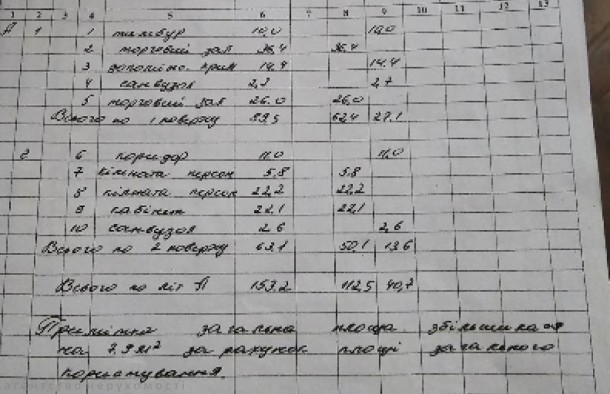 1 2 3 4 5 6 7 8 9 10 11 12 13
А 1 1 тамбур 10,0 10,0
2 торговий зал 36,4 36,4
3 допоміжн. прим 14.4 14.4
4 санвузол 2,7 2,7
5 торговий зал 26.0 26,0
Всього по 1 поверху 89,5 62,4 27,1
2 6 коридор 11,0 11,0
7 кімната персон 5,8 5,8
8 кімната персон 22,2 22,2
9 кабінет 22,1 22,1
10 санвузол 2,6 2,6
Всього по 2 поверху 63,7 50,1 13,6
Всього по літ А 153,2 112,5 40,7
Примітка загальна площа збільшилася
на 7.9 м² за рахунок площі загального
користування.
агентство нерухомості